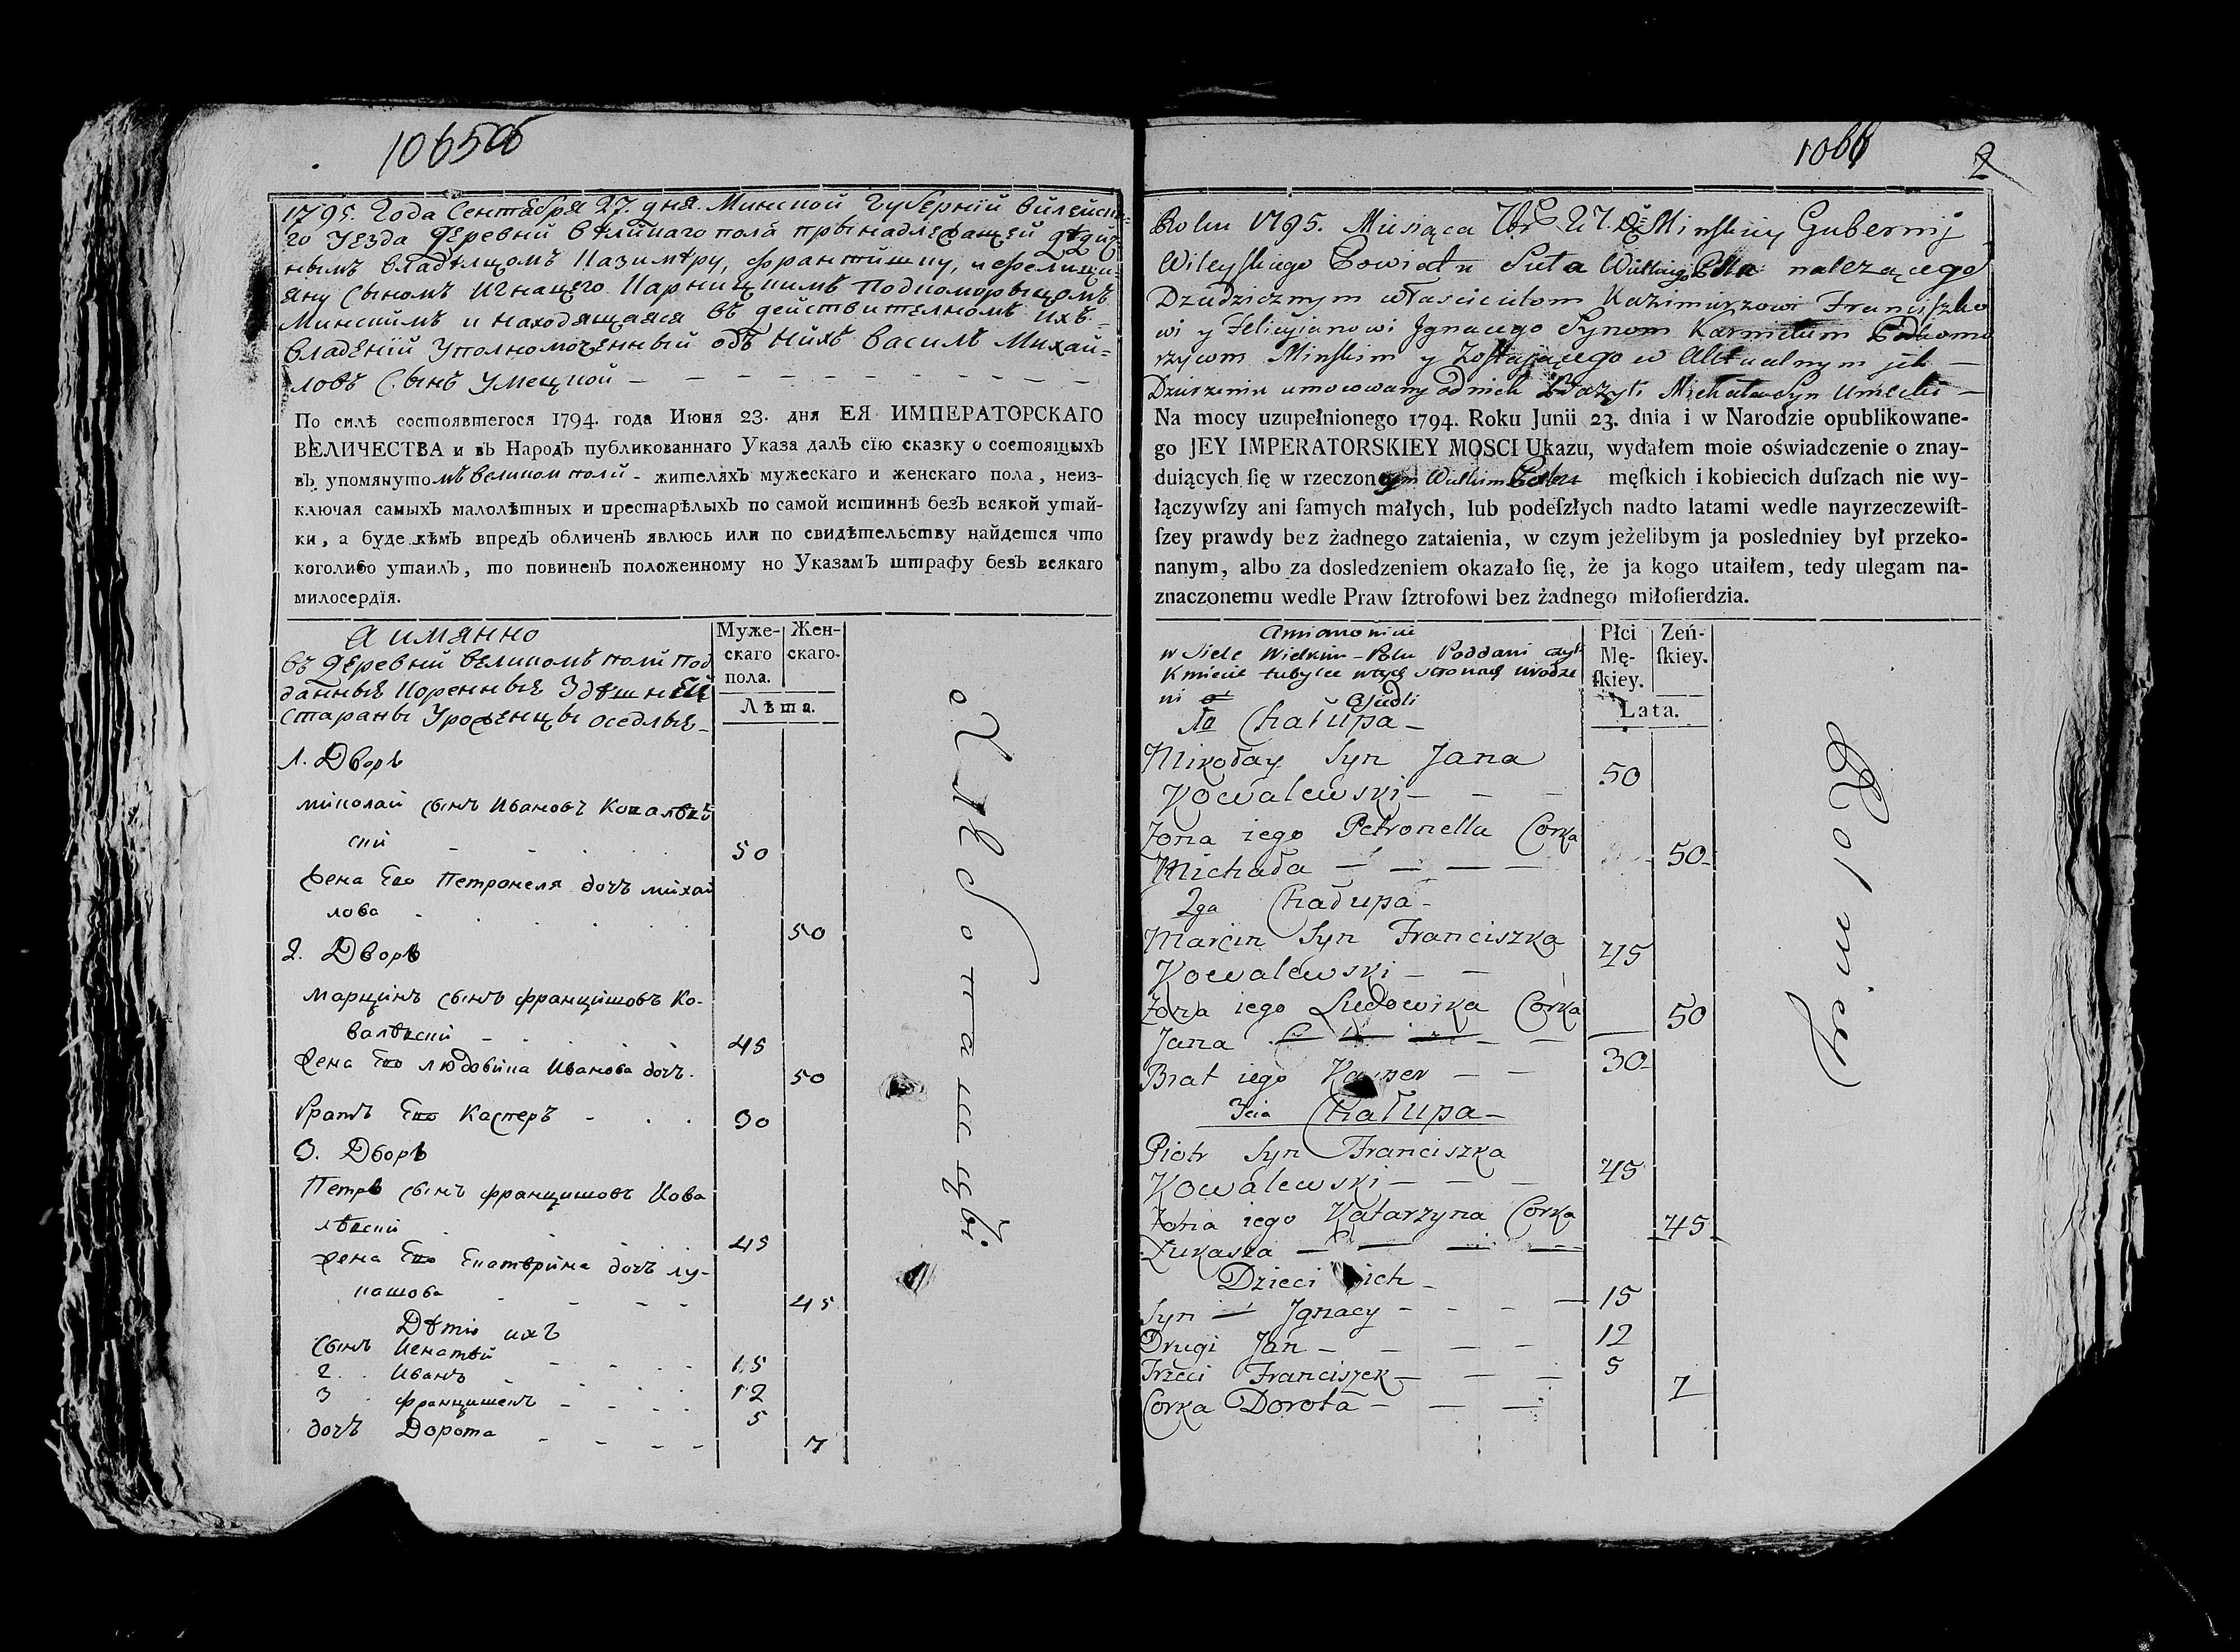 1065об
1795. Года Сентября 27. дня. Минской Губерніи Вилейска-
го Уезда деревни Велікаго поля принадлежащей дѣди-
нымъ владѣлцомъ Казимѣру, Францишку, и Фелици-
яну сыномъ Игнацего Карницкимъ Подкоморыцомъ
Минскимъ и находящаяся въ действителномъ ихъ
владеніи Уполномоченный одъ нихъ Василъ Михай=
ловъ сынъ Умецкой
По силѣ состоявшегося 1794. года Июня 23. дня ЕЯ ИМПЕРАТОРСКАГО
ВЕЛИЧЕСТВА и въ Народъ публикованнаго Указа далъ сїю сказку о состоящыхъ
въ упомянутомъ великом поли - жителяхъ мужескаго и женскаго пола, неиз-
ключая самыхъ малолѣтных и престарѣлыхъ по самой истиннѣ безъ всякой утай-
ки, а буде кѣмъ впредъ обличенъ явлюсь или по свидѣтельству найдется что
коголибо утаилъ, то повиненъ положенному по Указамъ штрафу безъ всякаго
милосердїя.
А имянно
въ деревни великомъ поли под
данные коренные Здѣшней
стараны Уроженцы оседлые
Муже-
скаго
пола.
Жен-
скаго.
Лѣта.
1. Дворъ
Миколай сынъ Ивановъ Ковалѣв
ский 50
Жена Его Петронеля дочъ михай
лова 50
2. Дворъ
Марцинъ сынъ францишовъ Ко-
валѣвский 45
Жена Его людовика Иванова дочъ. 50
Братъ Его Касперъ 30
3. Дворъ
Петръ сынъ францишовъ Кова
лѣвский 45
Жена Его Екатерина дочъ лу-
кашова 45
Дѣти ихъ
сынъ Игнатей 15
2. Иванъ 12
3 францишекъ 5
дочъ Дорота 7
1066
2
Roku 1795. Miesiąca 7br 27. D Minskiey Gubernij
Wileyskiego Powiatu Siela Wielkiego Pola nalezącego
Dziedzicznym własciciełom Kazimierzowi Franciszko
wi y Felicyianowi Jgnacego Synom Karnickim Podkomo
rzycom Minskim y Zostającego w Aktualnym jch
Dzierzeniu umocowany od nich Bazyli Michała Syn Umecki
Na mocy uzupełnionego 1794. Roku Junii 23. dnia i w Narodzie opublikowane-
go JEY IMPERATORSKIEY MOSCI Ukazu, wydałem moie oświadczenie o znay-
duiących ſię w rzeczonym Wielkim Polu męſkich i kobiecich duſzach nie wy-
łączywſzy ani ſamych małych, lub podeſzłych nadto latami wedle nayrzeczewiſt-
ſzey prawdy bez żadnego zataienia, w czym jeżelibym ja posledniey był przeko-
nanym, albo za dosledzeniem okazało ſię, że ja kogo utaiłem, tedy ulegam na-
znaczonemu wedle Praw ſztrofowi bez żadnego miłoſierdzia.
Amianowicie
w Siele Wielkim-Polu Poddani czyli
Kmiecie tubylce w tych stronach urodze
ni Osiedli
Płci
Mę-
ſkiey.
Zeń-
ſkiey.
Lata.
1a Chałupa
Mikołay Syn Jana 50
Kowalewski
Zona iego Petronella Corka
Michała 50
2ga Chałupa
Marcin Syn Franciszka 45
Kowalewski
Zona iego Ludowika Corka
Jana 50
Brat iego Kasper 30
3cia Chałupa
Piotr Syn Franciszka 45
Kowalewski
Zona iego Katarzyna Corka 45
Łukasza
Dzieci ich
Syn Jgnacy 15
Drugi Jan 12
Trzeci Franciszek 5
Corka Dorota 7